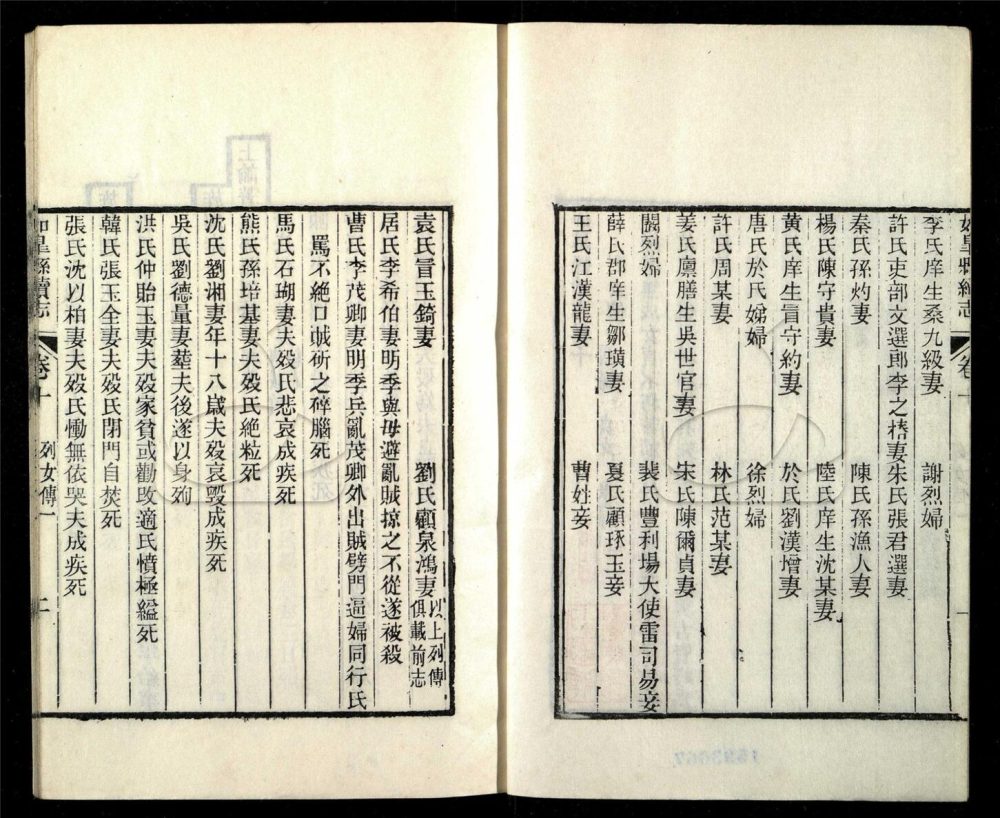 如皋縣續志 卷十 一
李氏庠生桑九級妻 謝烈婦
許氏吏部文選郎李之椿妻 朱氏張君選妻
秦氏孫灼妻 陳氏孫漁人妻
楊氏陳守貴妻 陸氏庠生沈某妻
黃氏庠生冒守約妻 於氏劉漢增妻
唐氏於氏娣婦 徐烈婦
許氏周某妻 林氏范某妻
姜氏廩膳生吳世官妻 宋氏陳爾貞妻
闕烈婦 裴氏豐利場大使雷司易妾
薛氏郡庠生鄒璜妻 夏氏顧琢玉妾
王氏江漢龍妻 曹姓妾
袁氏冒玉錡妻 劉氏顧泉鴻妻以上列傳俱載前志
居氏李希伯妻明季與母避亂賊掠之不從遂被殺
曹氏李茂卿妻明季兵亂茂卿外出賊劈門逼婦同行氏
罵不絕口賊斫之碎腦死
馬氏石瑚妻夫歿氏悲哀成疾死
熊氏孫培基妻夫歿氏絶粒死
沈氏劉湘妻年十八歲夫歿哀毀成疾死
吳氏劉德量妻塟夫後遂以身殉
洪氏仲貽玉妻夫歿家貧或勸改適氏憤極縊死
韓氏張玉全妻夫歿氏閉門自焚死
張氏沈以柏妻夫歿氏慟無依哭夫成疾死
如皋縣續志 卷十 列女傳一 二
1593667